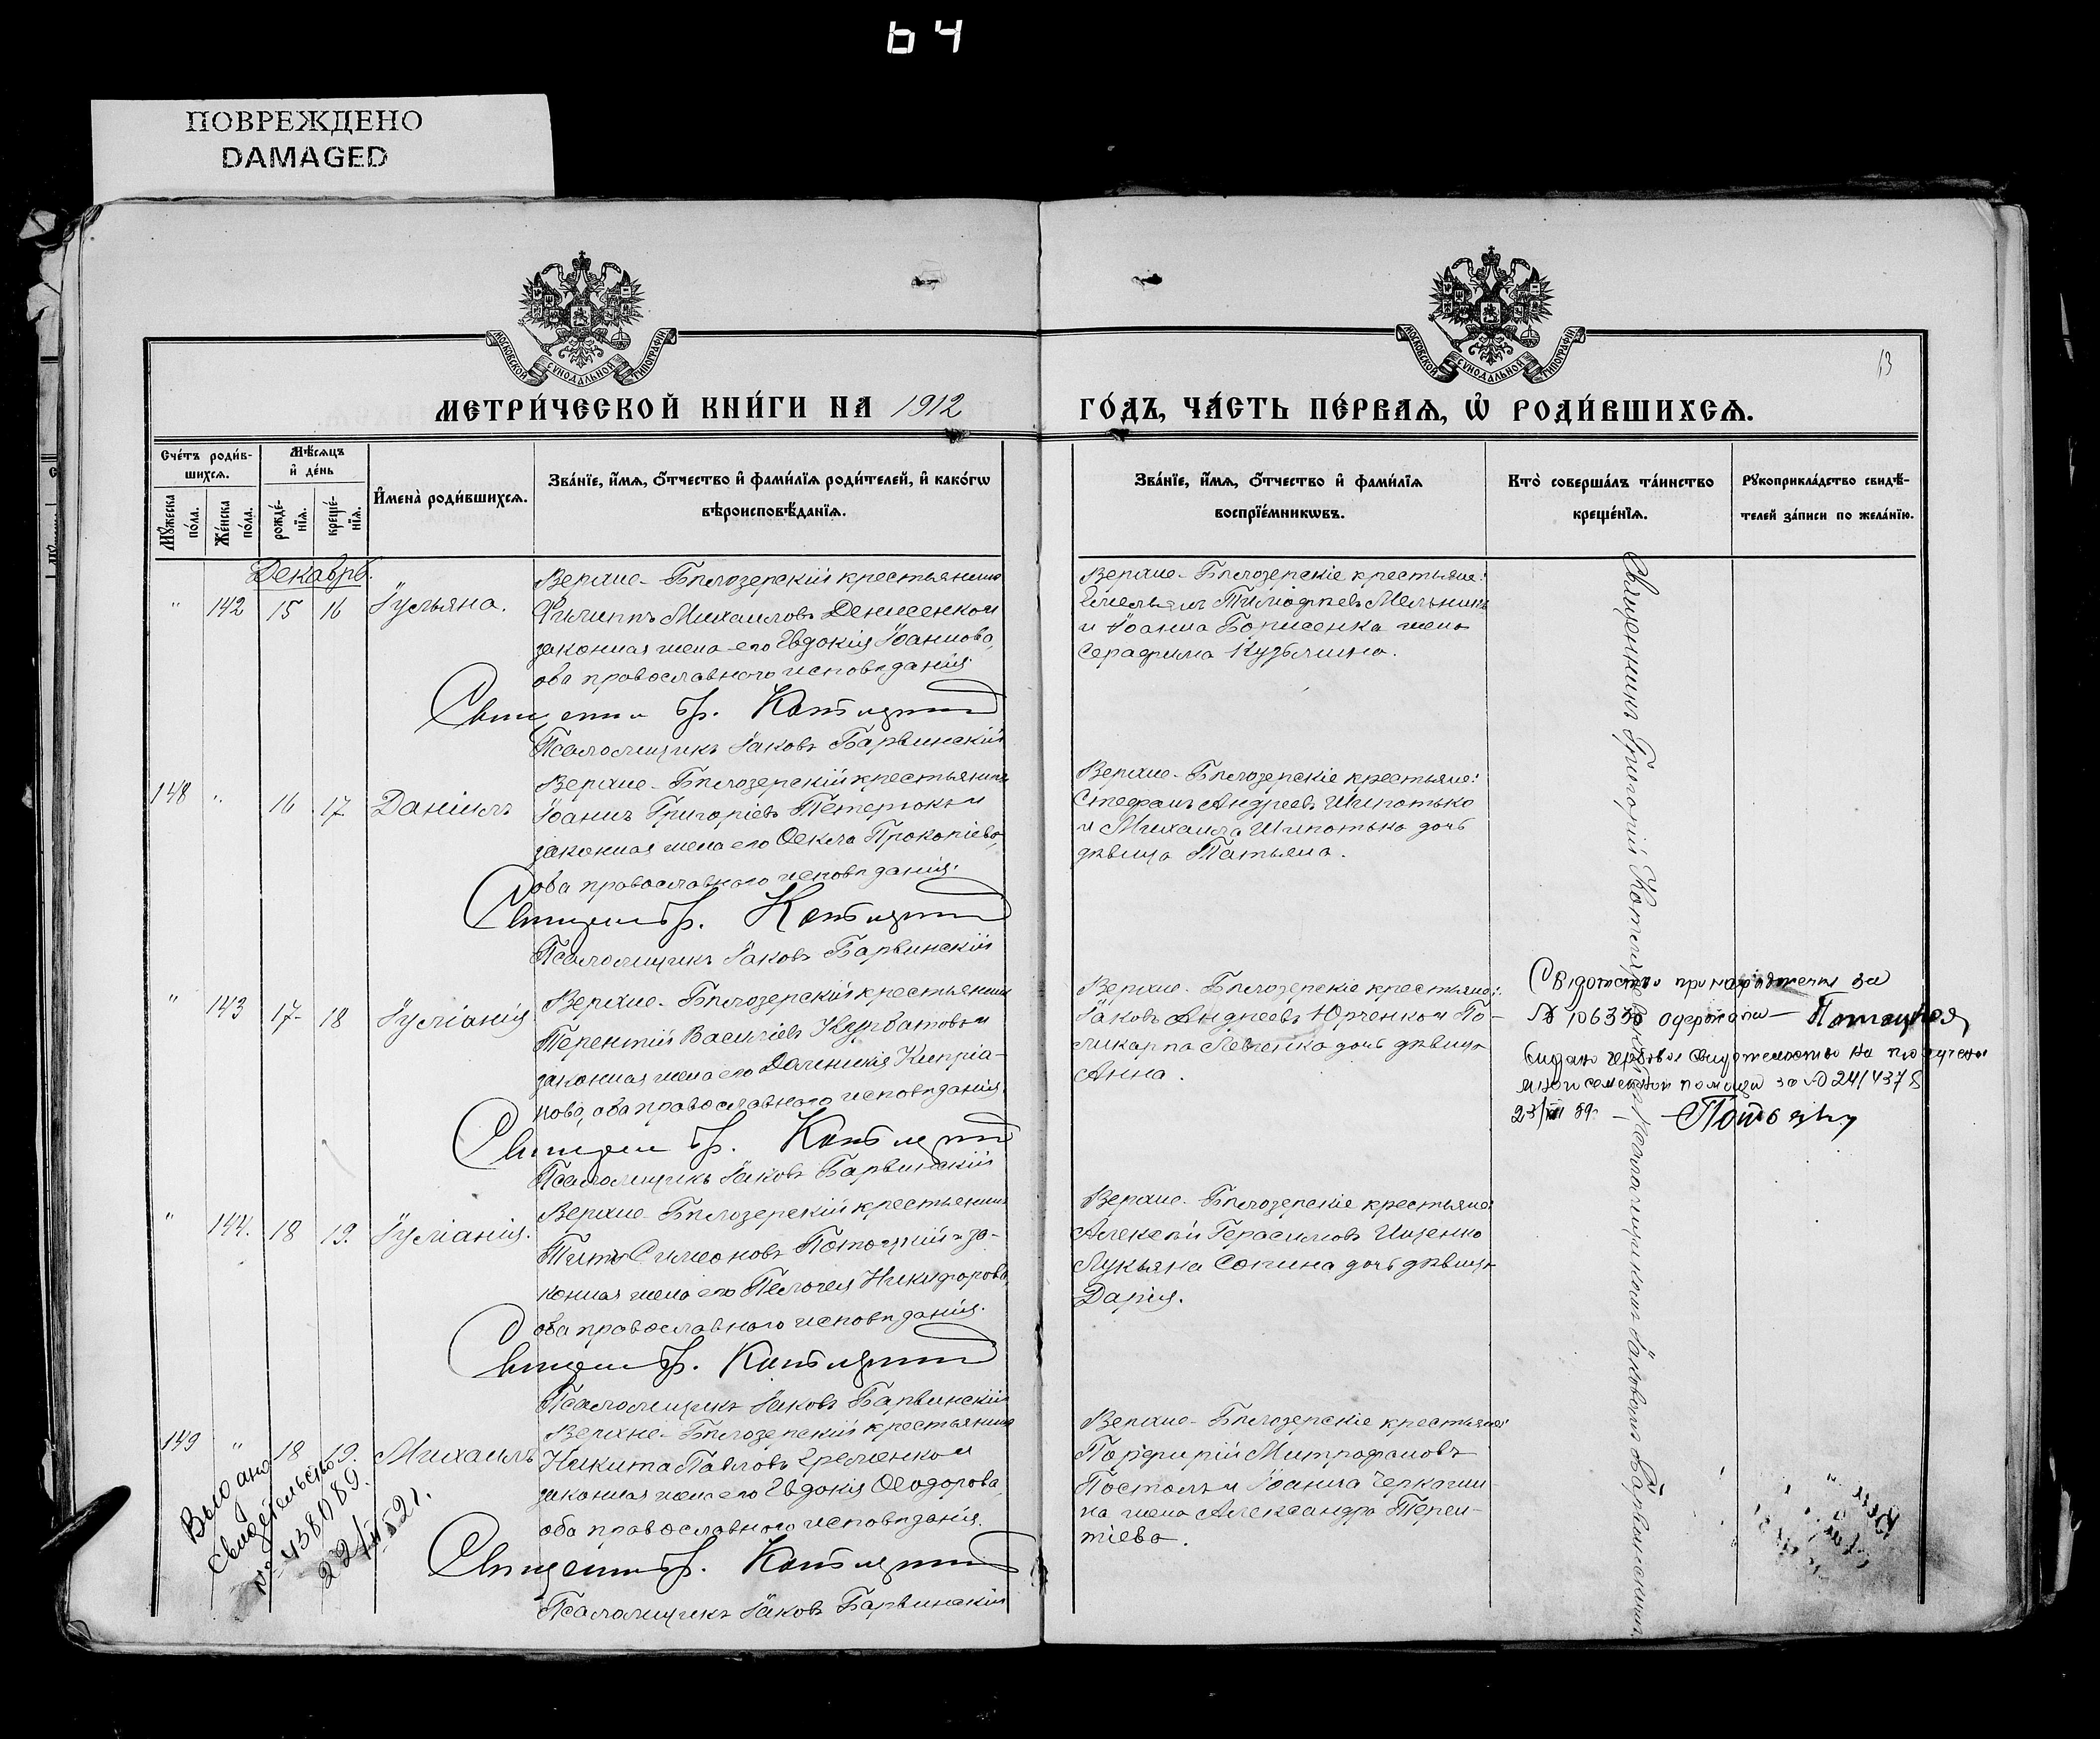 64
ПОВРЕЖДЕНО
DAMAGED
МОСКОВСКОЙ СУНОДАЛЬНОЙ ТИПОГРАФІИ
МОСКОВСКОЙ СУНОДАЛЬНОЙ ТИПОГРАФІИ
13
МЕТРИ́ЧЕСКОЙ КНИ́ГИ НА 1912
ГО́ДЪ, ЧА́СТЬ ПЕ́РВАѦ, Ѡ҆ РОДИ́ВШИХСѦ.
Сче́тъ роди́в-
шихсѧ.
Мѣ́сѧцъ
и҆ де́нь
Мꙋ́жеска
по́ла.
Же́нска
по́ла.
рожде́-
нїѧ.
креще́-
нїѧ.
И҆мена̀ роди́вшихсѧ.
Зва́нїе, и҆́мѧ, ѻ҆́тчество и҆ фами́лїѧ роди́телей, и҆ како́гѡ
вѣроисповѣ́данїѧ.
Зва́нїе, и҆́мѧ, ѻ҆́тчество и҆ фами́лїѧ
воспрїе́мникѡвъ.
Кто̀ соверша́лъ та́инство
креще́нїѧ.
Рꙋкоприкла́дство свидѣ́-
телей за́писи по жела́нїю.
Декабрь.
" 142 15 16 Іуліана.
Верхне-Бѣлозерскій крестьянинъ
Филиппъ Михаиловъ Денисенко и
законная жена его Евдокія Іоаннова,
оба православнаго исповѣданія.
Священникъ Гр.
Псаломщикъ Іаковъ Барвинскій
Верхне-Бѣлозерскіе крестьяне:
Емельянъ Тимофѣевъ Мельникъ
и Іоанна Борисенка жена
Серафима Кузьмина.
148 " 16 17 Даніилъ
Верхне-Бѣлозерскій крестьянинъ
Іоаннъ Григоріевъ Тетерюкъ и
законная жена его Ѳекла Прокопіева,
оба православнаго исповѣданія.
Священ. Гр.
Псаломщикъ Іаковъ Барвинскій
Верхне-Бѣлозерскіе крестьяне:
Стефанъ Андреевъ Шпотько
и Михаила Шпотька дочь
дѣвица Татьяна.
" 143 17 18 Іуліанія
Верхне-Бѣлозерскій крестьянинъ
Терентій Василіевъ Курбатовъ и
законная жена его Домникія Кипріа-
нова, оба православнаго исповѣданія.
Священ. Гр.
Псаломщикъ Іаковъ Барвинскій
Верхне-Бѣлозерскіе крестьяне:
Іаковъ Андреевъ Юрченко и По-
ликарпа Левченка дочь дѣвица
Анна.
Свідотство про народження за
№ 106330 одержала —
за № 241437
23/III 39. —
" 144. 18 19. Іуліанія.
Верхне-Бѣлозерскій крестьянинъ
Титъ Симеоновъ Потоцкій и за-
конная жена его Пелагея Никифорова,
оба православнаго исповѣданія.
Священ. Гр.
Псаломщикъ Іаковъ Барвинскій
Верхне-Бѣлозерскіе крестьяне:
Алексѣй Герасимовъ Ищенко
Лукьяна Сопина дочь дѣвица
Дарія.
149 " 18 19. Михаилъ
Верхне-Бѣлозерскій крестьянинъ
Никита Павловъ Еременко и
законная жена его Евдокія Ѳеодорова,
оба православнаго исповѣданія.
Священникъ Гр.
Псаломщикъ Іаковъ Барвинскій
Верхне-Бѣлозерскіе крестьяне:
Порфирій Митрофановъ
Постолъ и Іоанна Черкаши-
на жена Александра Терен-
тіева.
Выдано
Свидетельство
№ 438089.
Священникъ Григорій съ псаломщикомъ Іаковомъ Барвинскимъ.